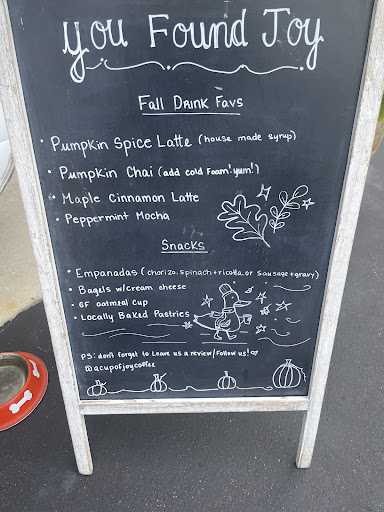 you Found Joy
Fall Drink Favs
• Pumpkin Spice Latte (house made syrup)
• Pumpkin Chai (add cold foam! yum!)
• Maple Cinnamon Latte
• Peppermint Mocha
Snacks
• Empanadas (chorizo, spinach + ricotta, or sausage + gravy)
• Bagels w/cream cheese
• GF oatmeal cup
• Locally Baked Pastries
PS: don't forget to leave us a review/follow us! ♡
@acupofjoycoffee